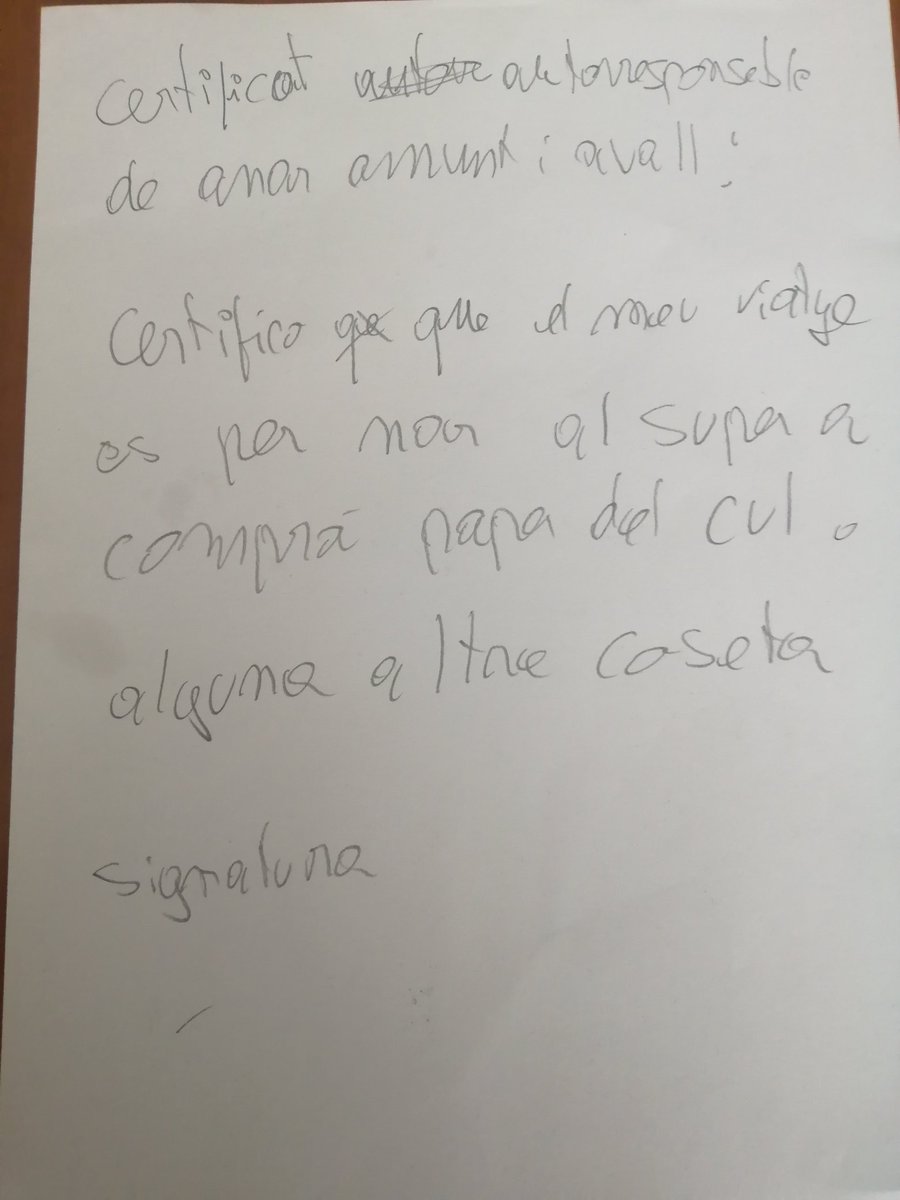 Certificat autorresponseble
de anar amunt i avall:
Certifico que el meu viatge
es per nar al supa a
comprá papa del cul o
alguna altre coseta
signatura